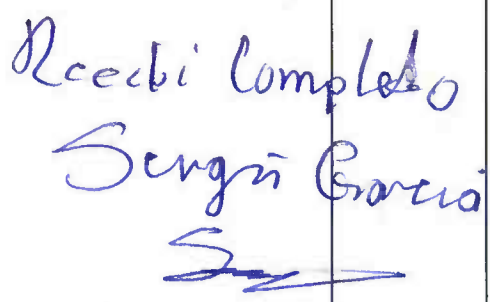 Recebi Completo
Sergio Garcia